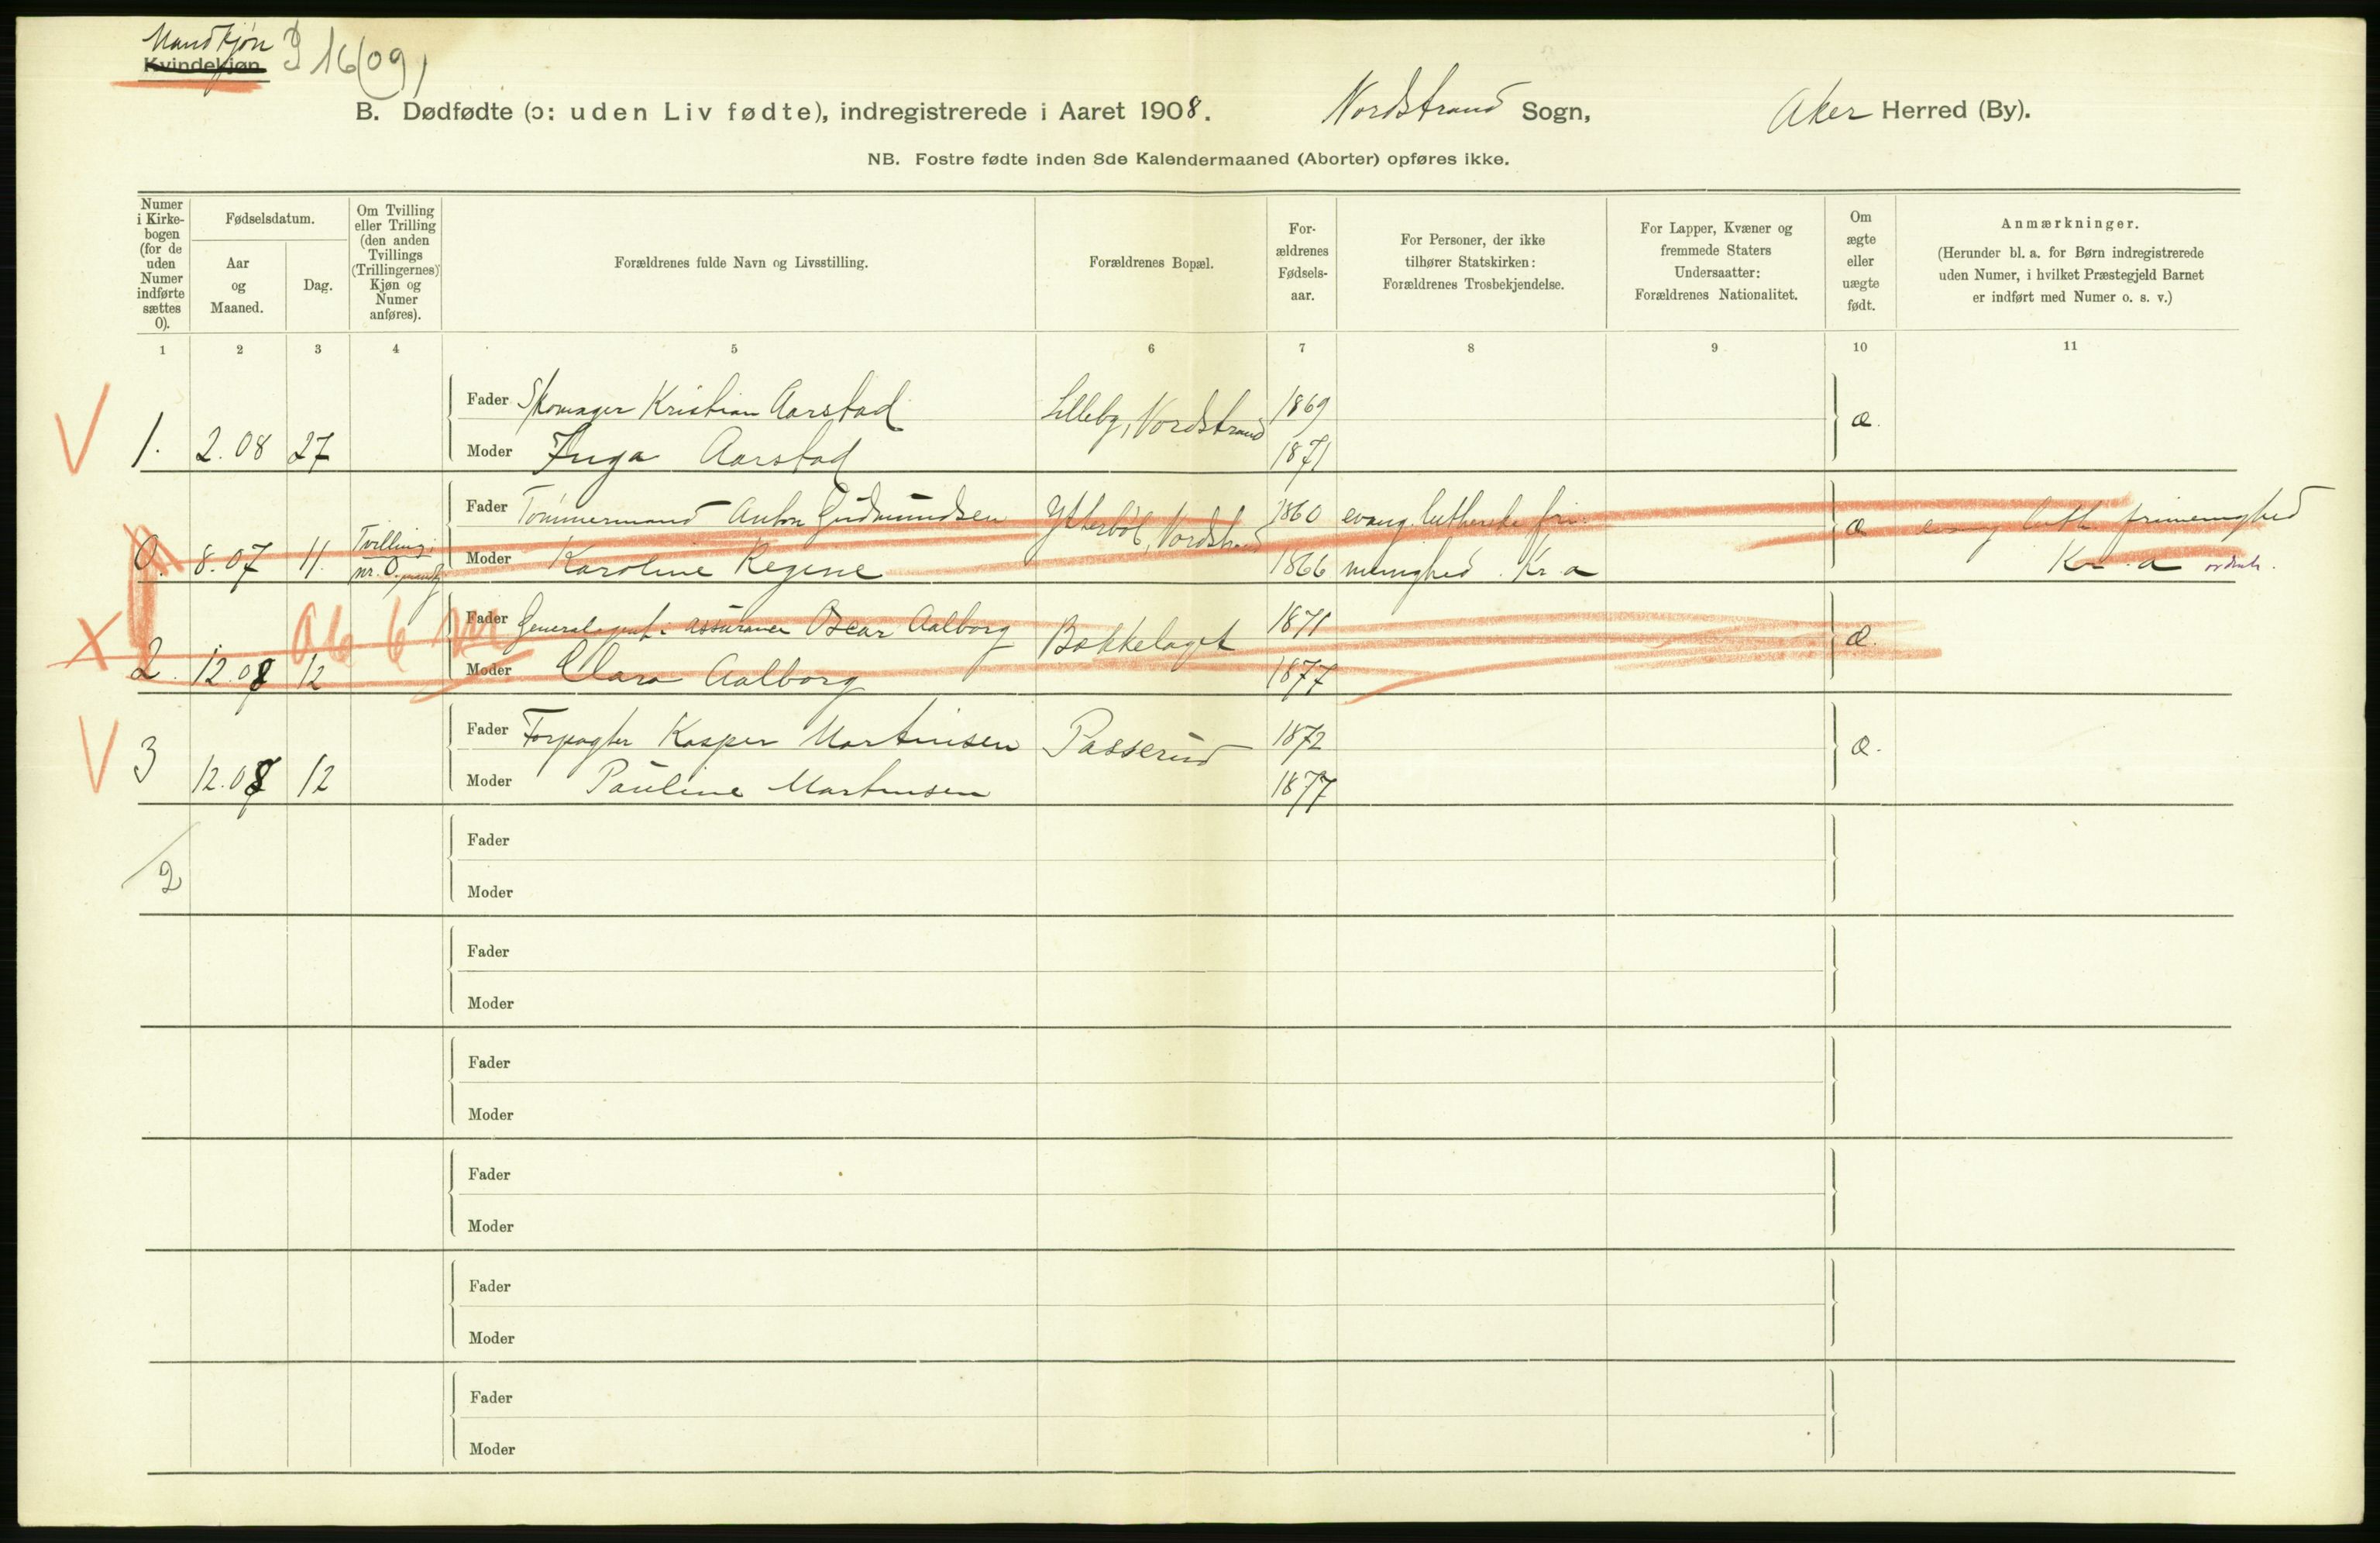 Mandkjøn
Kvindekjøn
16(09)
B. Dødfødte (ɔ: uden Liv fødte), indregistrerede i Aaret 1908. Nordstrand Sogn, Aker Herred (By).
NB. Fostre fødte inden 8de Kalendermaaned (Aborter) opføres ikke.
Numer i Kirke-bogen (for de uden Numer indførte sættes 0).
Fødselsdatum.
Aar og Maaned.
Dag.
Om Tvilling eller Trilling (den anden Tvillings (Trillingernes) Kjøn og Numer anføres).
Forældrenes fulde Navn og Livsstilling.
Forældrenes Bopæl.
For-ældrenes Fødsels-aar.
For Personer, der ikke tilhører Statskirken: Forældrenes Trosbekjendelse.
For Lapper, Kvæner og fremmede Staters Undersaatter: Forældrenes Nationalitet.
Om ægte eller uægte født.
Anmærkninger.
(Herunder bl. a. for Børn indregistrerede uden Numer, i hvilket Præstegjeld Barnet er indført med Numer o. s. v.)
1 2 3 4 5 6 7 8 9 10 11
V
Fader Skomager Kristian Aarstad Lilleby, Nordstrand 1869 æ.
1. 2.08 27 Moder Inga Aarstad 1871
Fader Tømmermand Anton Gudmundsen Ytterbøl, Nordstrand 1860 evang. lutherske fri- æ evang luth frimenighed
0. 8.07 11. Tvilling: nr. 0. Moder Karoline Regine 1866 menighed. Kr.a Kr.a
X
Fader Generalagent i assurance Oscar Aalborg Bækkelaget 1871 æ.
2. 12.08 12 Moder Clara Aalborg 1877
V
Fader Forpagter Kasper Martinsen Passerud 1872 æ.
3 12.08 12 Moder Pauline Martinsen 1877
Fader
2
Moder
Fader
Moder
Fader
Moder
Fader
Moder
Fader
Moder
Fader
Moder